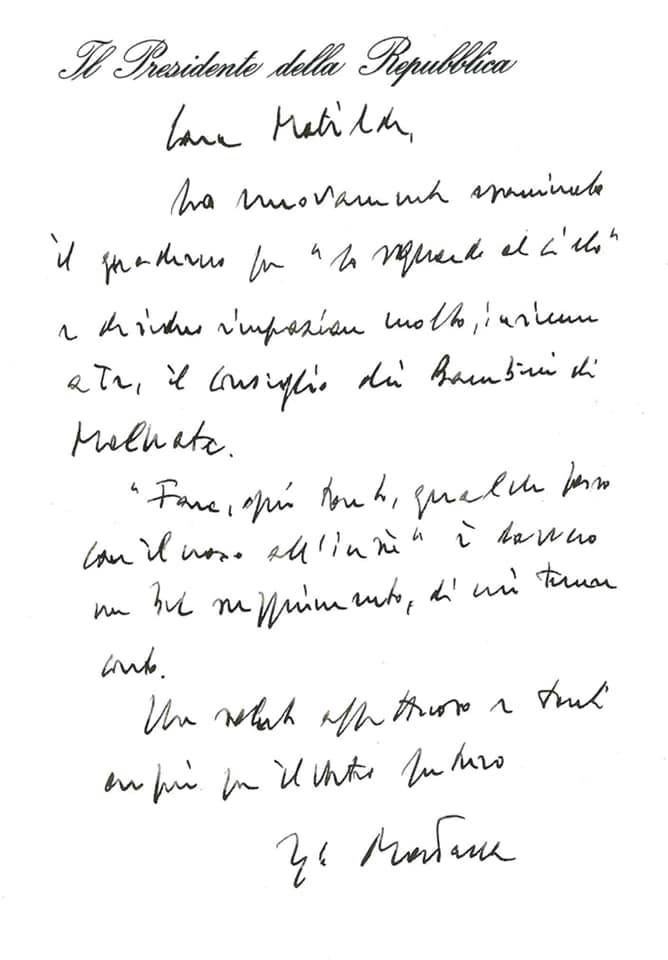 Il Presidente della Repubblica
Cara Matilde,
ho nuovamente esaminato
il quaderno per "lo sguardo al cielo"
e desidero ringraziare molto, insieme
a Te, il Consiglio dei Bambini di
Malnate.
"Fare, ogni tanto, qualche passo
con il naso all'insù" è davvero
un bel suggerimento, di cui tenere
conto.
Un saluto affettuoso e tanti
auguri per il Vostro futuro
Mattarella